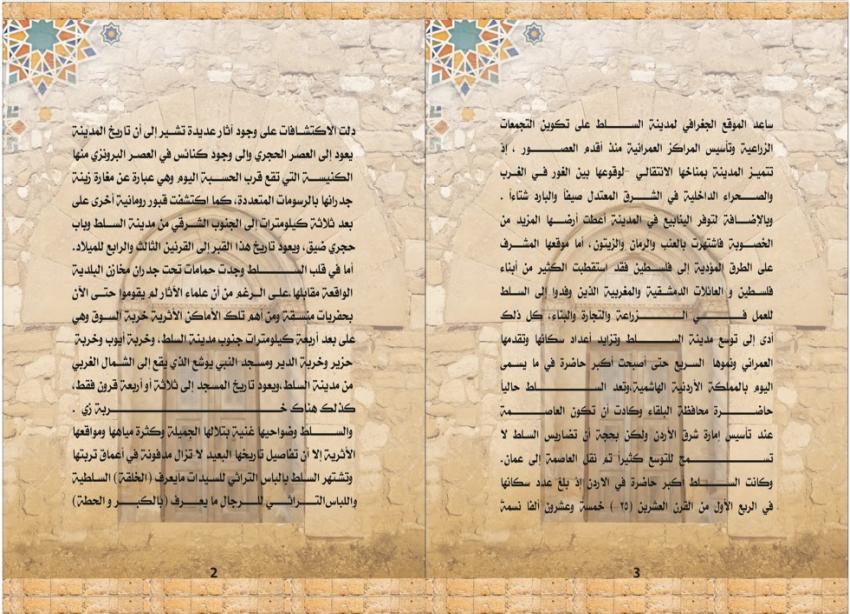 دلت الاكتشافات على وجود أثار عديدة تشير إلى أن تاريخ المدينة
يعود إلى العصر الحجري والى وجود كنائس في العصر البرونزي منها
الكنيسة التي تقع قرب الحسبة اليوم وهي عبارة عن مغارة زينة
جدرانها بالرسومات المتعددة، كما اكتشفت قبور رومانية أخرى على
بعد ثلاثة كيلومترات إلى الجنوب الشرقي من مدينة السلط وباب
حجري ضيق، ويعود تاريخ هذا القبر إلى القرنين الثالث والرابع للميلاد.
أما في قلب السلط وجدت حمامات تحت جدران مخازن البلدية
الواقعة مقابلها،على الرغم من أن علماء الأثار لم يقوموا حتى الآن
بحفريات منسقة ومن أهم تلك الأماكن الأثرية خربة السوق وهي
على بعد أربعة كيلومترات جنوب مدينة السلط، وخربة أيوب وخربة
حزير وخربة الدير ومسجد النبي يوشع الذي يقع إلى الشمال الغربي
من مدينة السلط،ويعود تاريخ المسجد إلى ثلاثة أو أربعة قرون فقط،
كذلك هناك خربة زي .
والسلط وضواحيها غنية بتلالها الجميلة وكثرة مياهها ومواقعها
الأثرية إلا أن تفاصيل تاريخها البعيد لا تزال مدفونة في أعماق تربتها
وتشتهر السلط بالباس التراثي للسيدات مايعرف (الخلقة) السلطية
واللباس التراثي للرجال ما يعرف (بالكبر و الحطة)
2
ساعد الموقع الجغرافي لمدينة السلط على تكوين التجمعات
الزراعية وتأسيس المراكز العمرانية منذ أقدم العصور ، إذ
تتميز المدينة بمناخها الانتقالي -لوقوعها بين الغور في الغرب
والصحراء الداخلية في الشرق المعتدل صيفاً والبارد شتاءاً .
وبالإضافة لتوفر الينابيع في المدينة أعطت أرضها المزيد من
الخصوبة فاشتهرت بالعنب والرمان والزيتون، أما موقعها المشرف
على الطرق المؤدية إلى فلسطين فقد استقطبت الكثير من أبناء
فلسطين و العائلات الدمشقية والمغربية الذين وفدوا إلى السلط
للعمل في الزراعة والتجارة والبناء، كل ذلك
أدى إلى توسع مدينة السلط وتزايد أعداد سكانها وتقدمها
العمراني ونموها السريع حتى أصبحت أكبر حاضرة في ما يسمى
اليوم بالمملكة الأردنية الهاشمية،وتعد السلط حالياً
حاضرة محافظة البلقاء وكادت أن تكون العاصمة
عند تأسيس إمارة شرق الأردن ولكن بحجة أن تضاريس السلط لا
تسمح للتوسع كثيراً تم نقل العاصمة إلى عمان.
وكانت السلط أكبر حاضرة في الاردن إذ بلغ عدد سكانها
في الربع الأول من القرن العشرين (٢٥ ) خمسة وعشرون ألفا نسمة
3